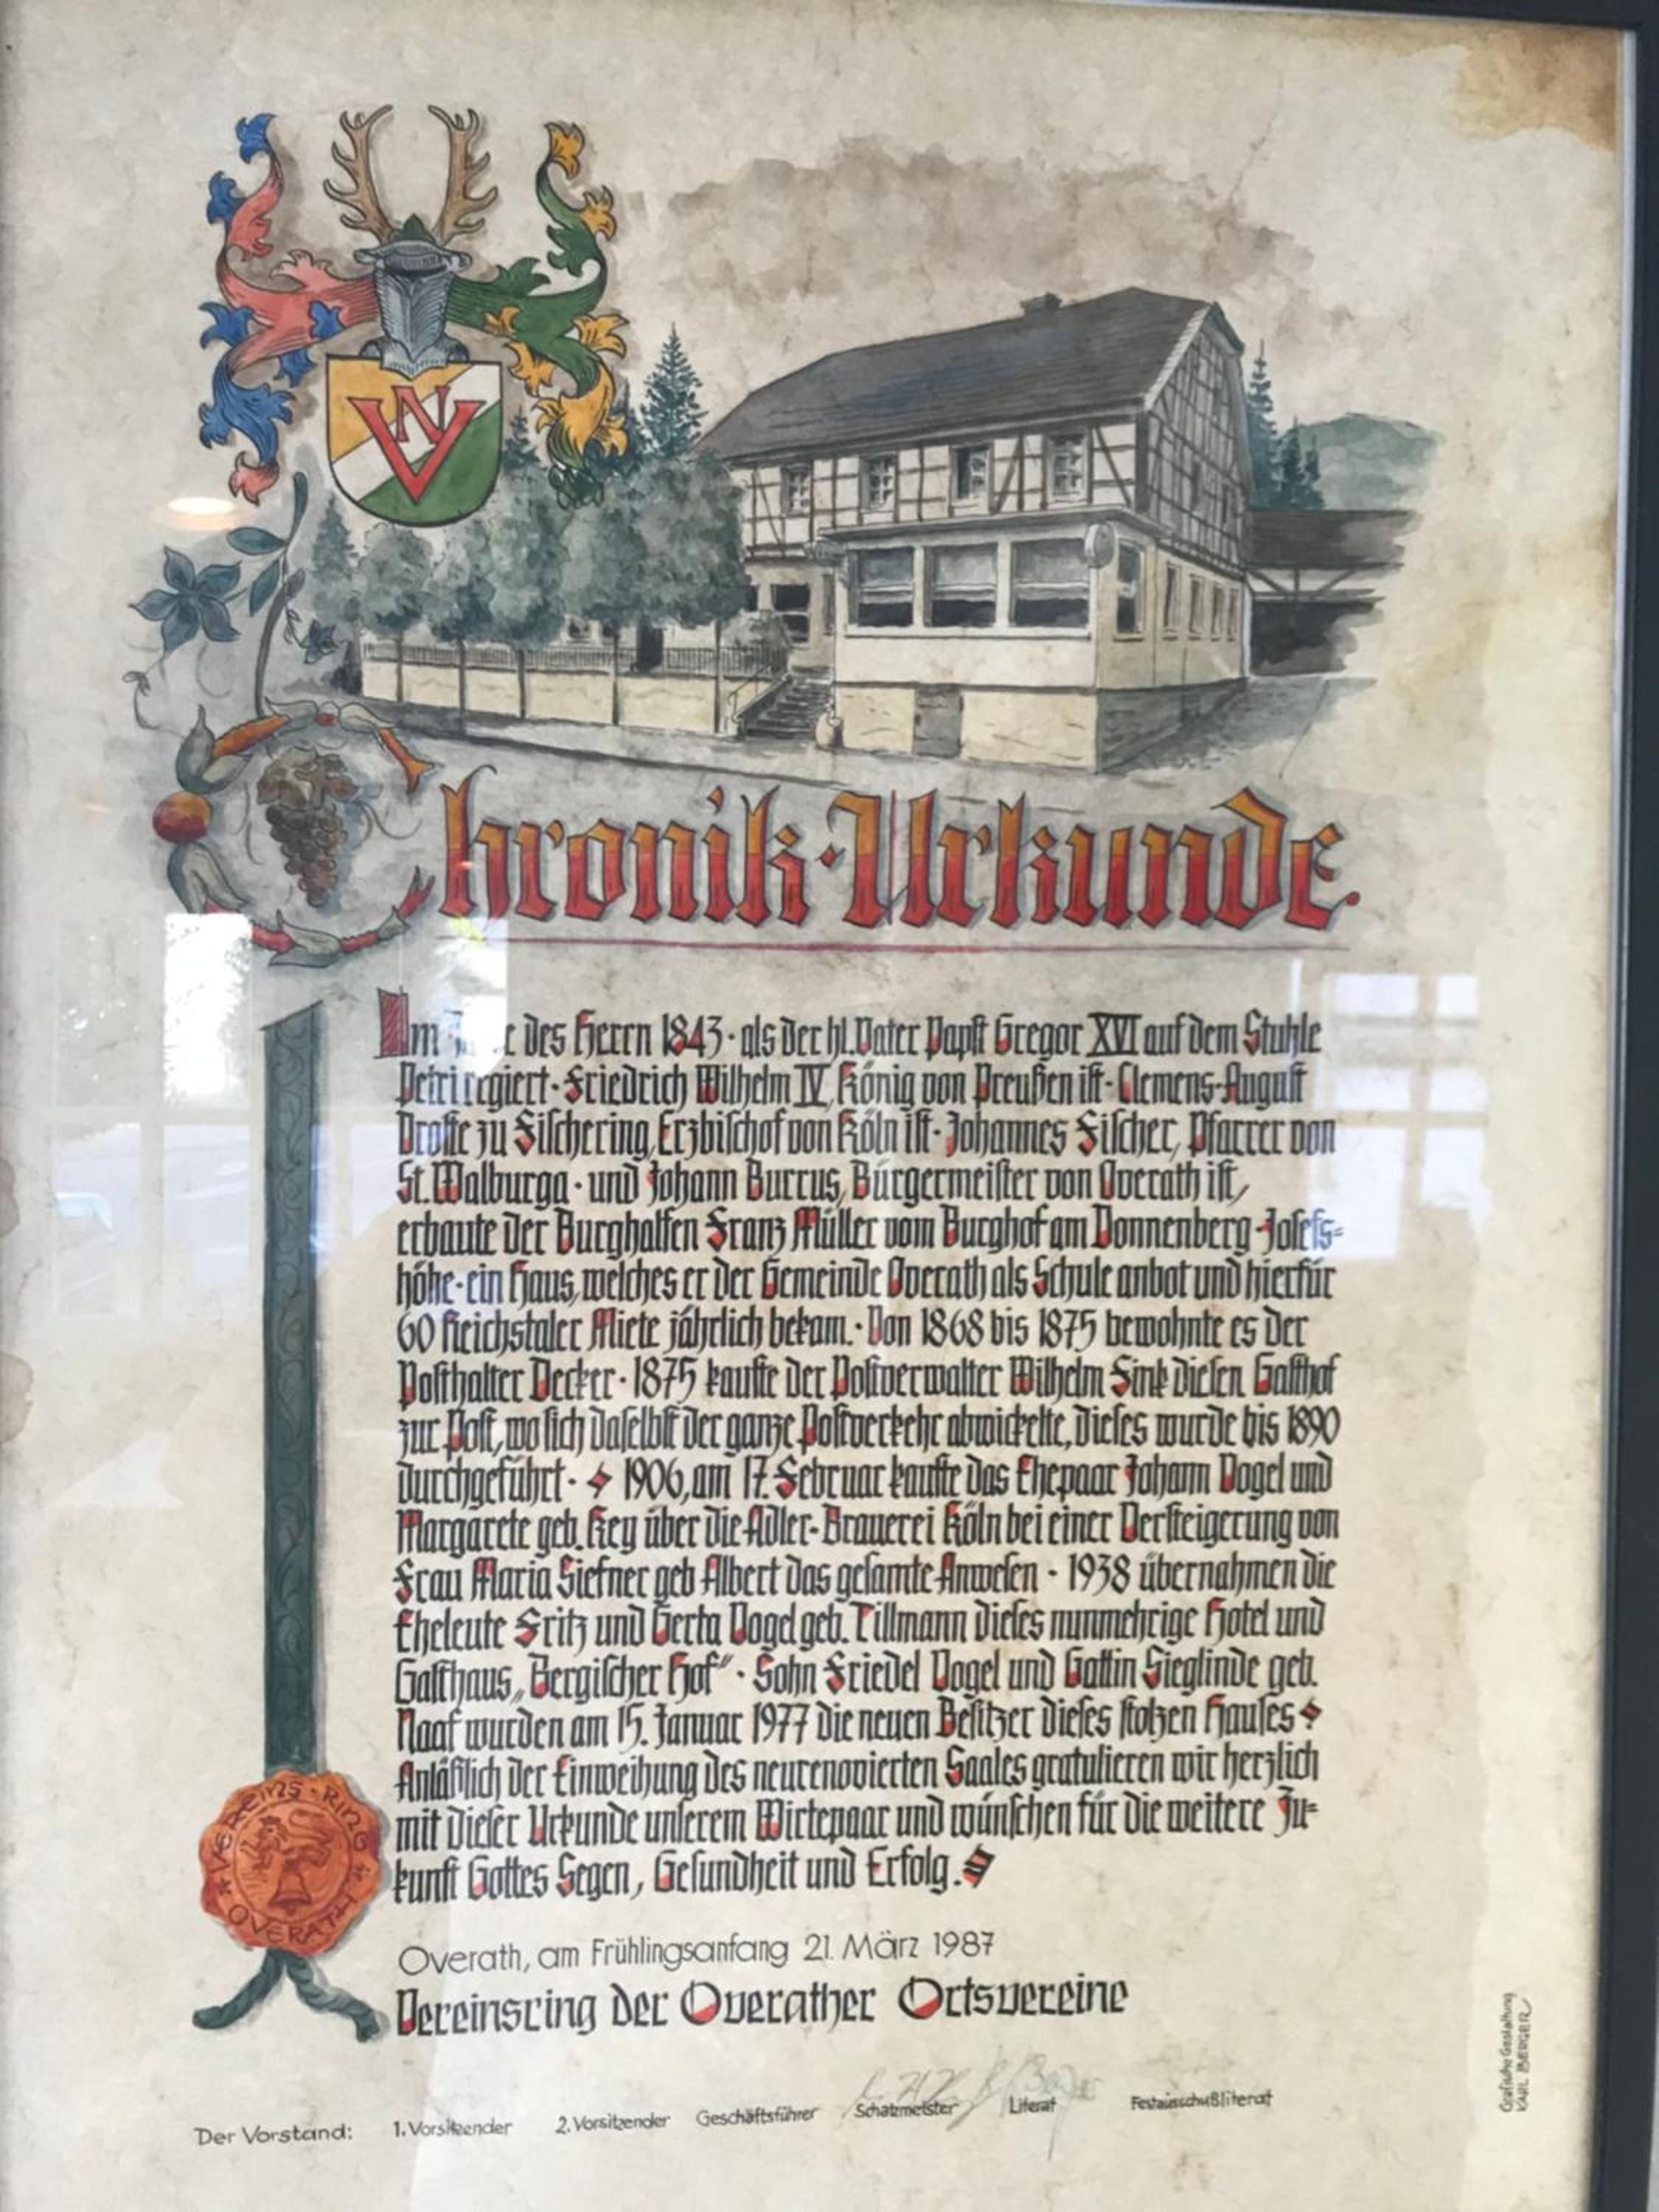 VN
Chronik-Urkunde.
Im des Herrn 1843 · als der hl. Vater Papst Gregor XVI auf dem Stuhle
Petri regiert · Friedrich Wilhelm IV, König von Preußen ist · Clemens-August
Droste zu Fischering, Erzbischof von Köln ist · Johannes Fischer, Pfarrer von
St. Walburga · und Johann Burrus, Bürgermeister von Overath ist,
erbaute der Burghalfen Franz Müller vom Burghof am Donnenberg - Josefs=
höhe · ein Haus, welches er der Gemeinde Overath als Schule anbot und hierfür
60 Reichstaler Miete jährlich bekam. · Von 1868 bis 1875 bewohnte es der
Posthalter Decker · 1875 kaufte der Postverwalter Wilhelm Fink diesen Gasthof
zur Post, wo sich daselbst der ganze Postverkehr abwickelte, dieses wurde bis 1890
durchgeführt · 1906, am 17. Februar kaufte das Ehepaar Johann Vogel und
Margarete geb. Key über die Adler-Brauerei Köln bei einer Versteigerung von
Frau Maria Siefner geb Albert das gesamte Anwesen - 1938 übernahmen die
Eheleute Fritz und Gerta Vogel geb. Tillmann dieses nunmehrige Hotel und
Gasthaus „Bergischer Hof“ · Sohn Friedel Vogel und Gattin Sieglinde geb.
Naaf wurden am 15. Januar 1977 die neuen Besitzer dieses stolzen Hauses
Anläßlich der Einweihung des neurenovierten Saales gratulieren wir herzlich
mit dieser Urkunde unserem Wirtepaar und wünschen für die weitere Zu=
kunft Gottes Segen, Gesundheit und Erfolg.
VEREINS·RING OVERATH
Overath, am Frühlingsanfang 21. März 1987
Vereinsring der Overather Ortsvereine
Der Vorstand: 1. Vorsitzender 2. Vorsitzender Geschäftsführer Schatzmeister Literat Festausschußliterat
Grafische Gestaltung
KARL BERGER